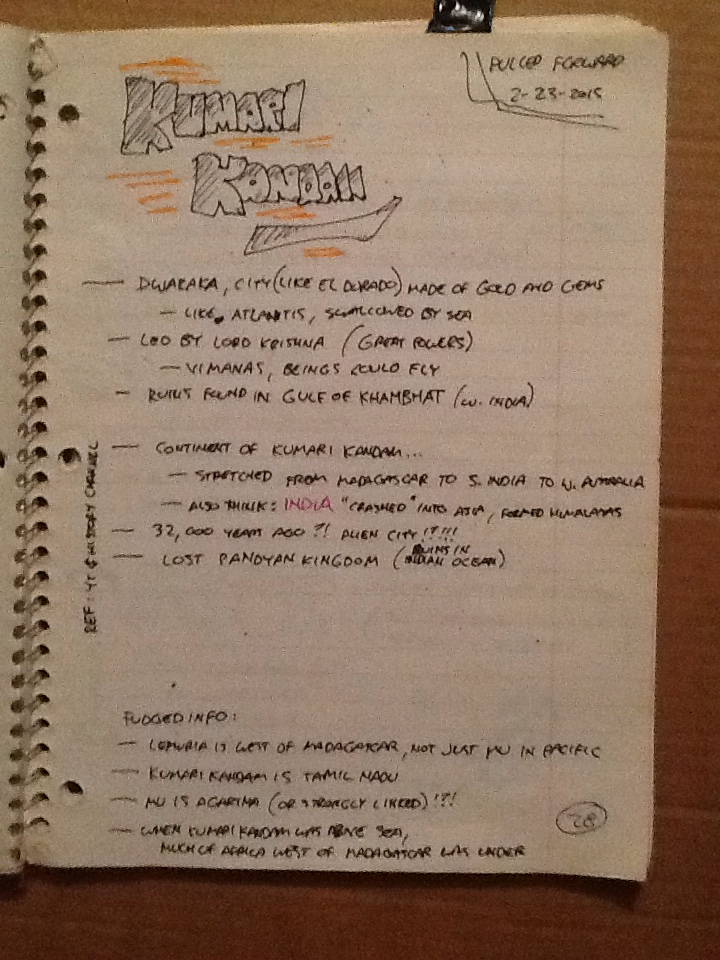 PULLED FORWARD
2-23-2015
KUMARI
KANDAM
— DWARAKA, CITY (LIKE EL DORADO) MADE OF GOLD AND GEMS
— LIKE ATLANTIS, SWALLOWED BY SEA
— LED BY LORD KRISHNA (GREAT POWERS)
— VIMANAS, BEINGS COULD FLY
— RUINS FOUND IN GULF OF KHAMBHAT (W. INDIA)
— CONTINENT OF KUMARI KANDAM...
— STRETCHED FROM MADAGASCAR TO S. INDIA TO W. AUSTRALIA
— ALSO THINK: INDIA "CRASHED" INTO ASIA, FORMED HIMALAYAS
— 32,000 YEARS AGO?! ALIEN CITY!?!!!
— LOST PANDYAN KINGDOM (RUINS IN INDIAN OCEAN)
REF: YT & HISTORY CHANNEL
FUDGED INFO:
— LEMURIA IS WEST OF MADAGASCAR, NOT JUST MU IN PACIFIC
— KUMARI KANDAM IS TAMIL NADU
— MU IS AGARTHA (OR STRONGLY LINKED)!?!
— WHEN KUMARI KANDAM WAS ABOVE SEA,
MUCH OF AFRICA WEST OF MADAGASCAR WAS UNDER
28